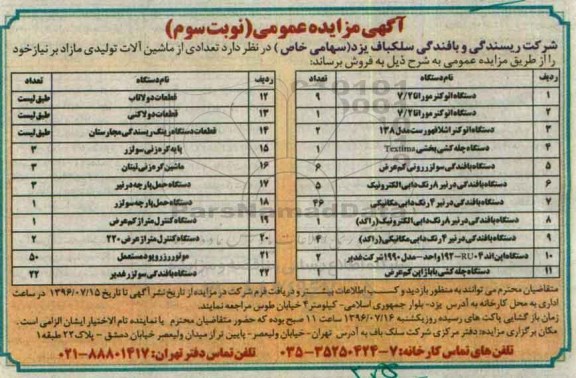 آگهی مزایده عمومی (نوبت سوم)
شرکت ریسندگی و بافندگی سلکباف یزد (سهامی خاص) در نظر دارد تعدادی از ماشین آلات تولیدی مازاد بر نیاز خود
را از طریق مزایده عمومی به شرح ذیل به فروش برساند:
ردیف نام دستگاه تعداد
۱ دستگاه اتوکنر موراتا ۷/۲ ۹
۲ دستگاه اتوکنر موراتا ۷/۲ ۱
۳ دستگاه اتوکنر اشلافهورست مدل ۱۳۸ ۲
۴ دستگاه چله کشی بخشی Textima ۱
۵ دستگاه بافندگی سولزر رونی کم عرض ۶
۶ دستگاه بافندگی درنیر ۸ رنگ دابی الکترونیک ۵
۷ دستگاه بافندگی درنیر ۴ رنگ دابی مکانیکی ۴۶
۸ دستگاه بافندگی درنیر ۸ رنگ دابی الکترونیک (راکد) ۱
۹ دستگاه بافندگی درنیر ۴ رنگ دابی مکانیکی (راکد) ۴
۱۰ دستگاه اپن اند RU۰۴-۱۹۲ واحد - مدل ۱۹۹۰ شرکت غدیر ۲
۱۱ دستگاه چله کشی با باز اپن کم عرض ۱
ردیف نام دستگاه تعداد
۱۲ قطعات دولاتاب طبق لیست
۱۳ قطعات دولاکنی طبق لیست
۱۴ قطعات دستگاه رینگ ریسندگی مجارستان طبق لیست
۱۵ پایه گره زنی سولزر ۳
۱۶ ماشین گره زنی تیتان ۳
۱۷ دستگاه حمل پارچه درنیر ۳
۱۸ دستگاه حمل پارچه سولزر ۱
۱۹ دستگاه کنترل متراژ کم عرض ۱
۲۰ دستگاه کنترل متراژ عرض ۲۲۰ ۲
۲۱ موتور رزرو پود مستعمل ۵۰
۲۲ دستگاه بافندگی سولزر غدیر ۲۲
متقاضیان محترم می توانند به منظور بازدید و کسب اطلاعات بیشتر و دریافت فرم شرکت در مزایده از تاریخ نشر آگهی تا تاریخ ۱۳۹۶/۰۷/۱۵ در ساعت
اداری به محل کارخانه به آدرس یزد- بلوار جمهوری اسلامی- کیلومتر ۴ خیابان طوس مراجعه نمایند.
زمان بازگشایی پاکت های رسیده روز یکشنبه ۱۳۹۶/۰۷/۱۶ ساعت ۱۱ صبح بوده که حضور متقاضیان محترم یا نماینده تام الاختیار ایشان الزامی است.
مکان برگزاری مزایده: دفتر مرکزی شرکت سلک باف به آدرس تهران- خیابان ولیعصر- پایین تر از میدان ولیعصر خیابان دمشق - پلاک ۲۲ طبقه ۱
تلفن های تماس کارخانه: ۷-۳۵۲۵۰۴۲۴-۰۳۵ تلفن تماس دفتر تهران: ۸۸۸۰۱۴۱۷-۰۲۱